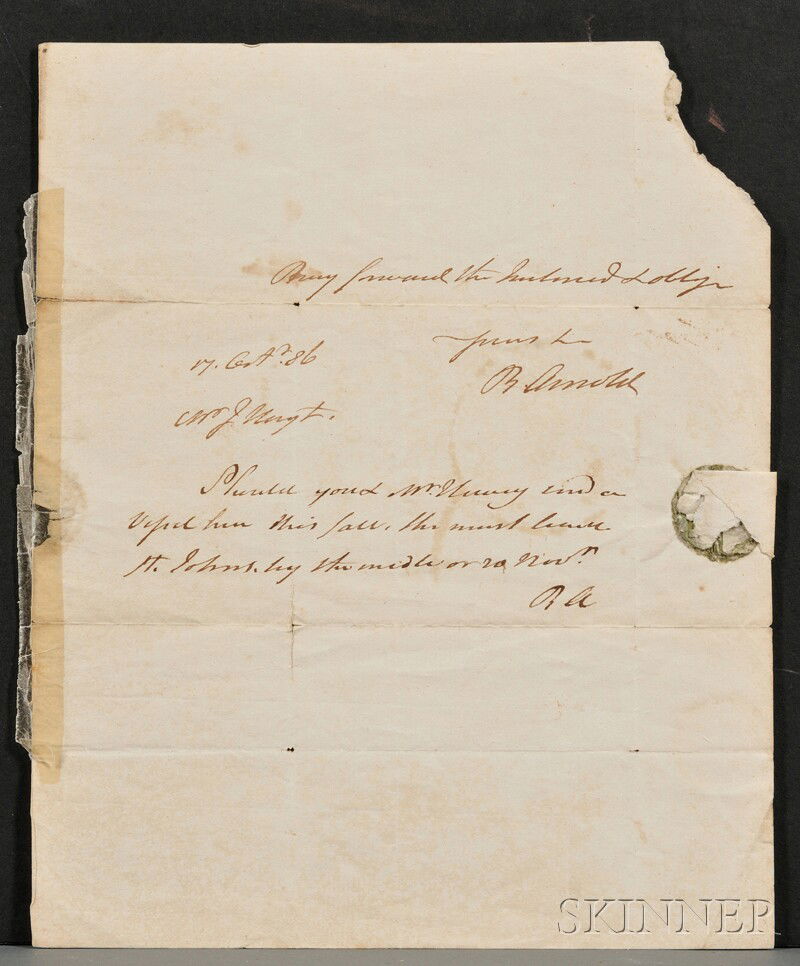 Pray forward the Inclosed & oblige
yours &c
17. Octr. 86
B. Arnold
Mr J Hoyt.
Should you & Mr send a
Vessel here this fall. she must leave
St. Johns. by the midle or 20 Novr.
B A
SKINNER